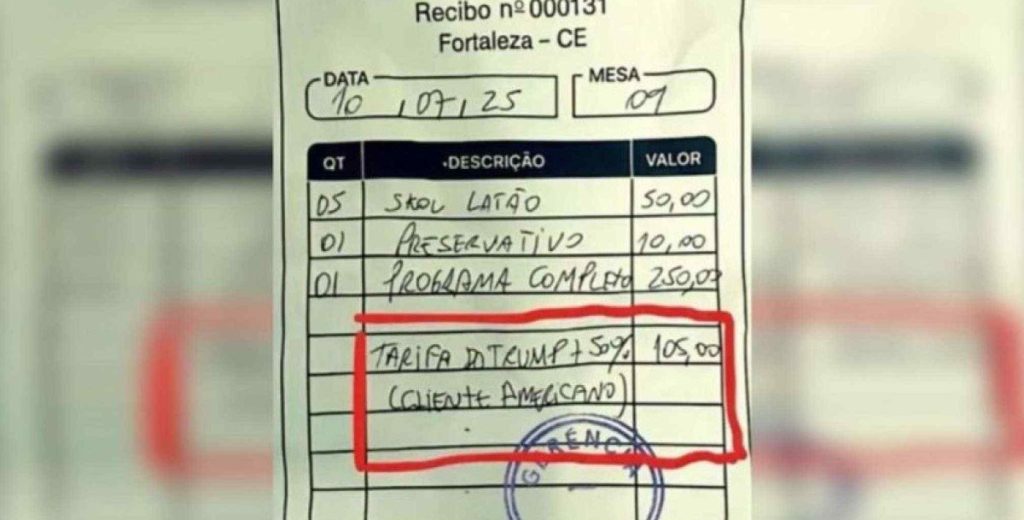 Recibo nº 000131
Fortaleza – CE
DATA MESA
10 , 07, 25 09
QT •DESCRIÇÃO VALOR
05 SKOL LATÃO 50,00
01 PRESERVATIVO 10,00
01 PROGRAMA COMPLETO 250,00
TARIFA DO TRUMP + 50% 105,00
(CLIENTE AMERICANO)
GERENCIA